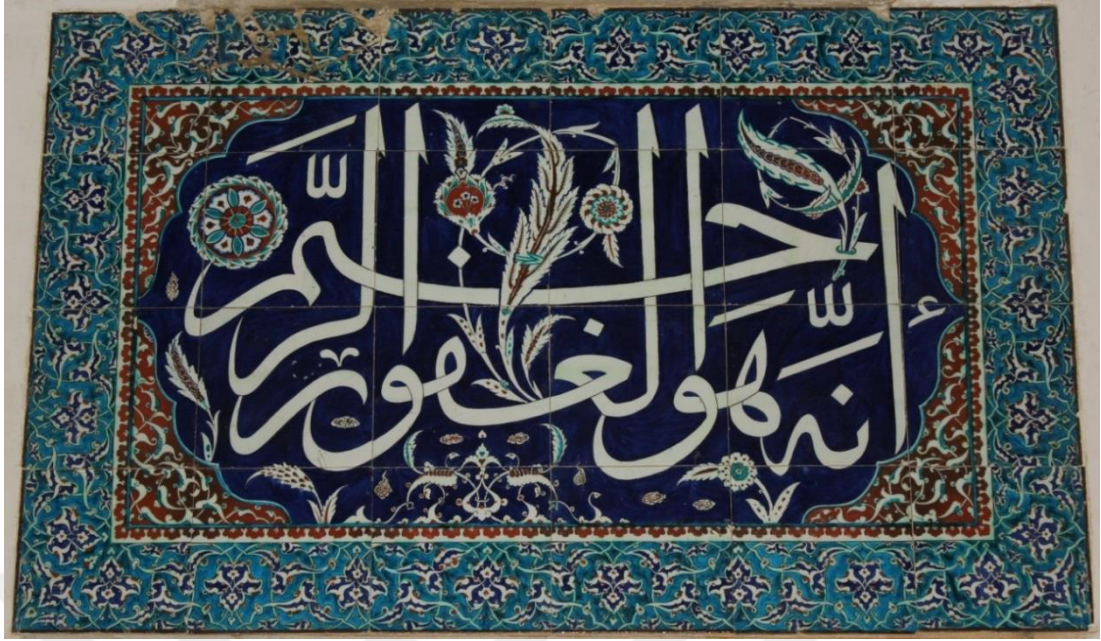 إنه هو الغفور الرحيم